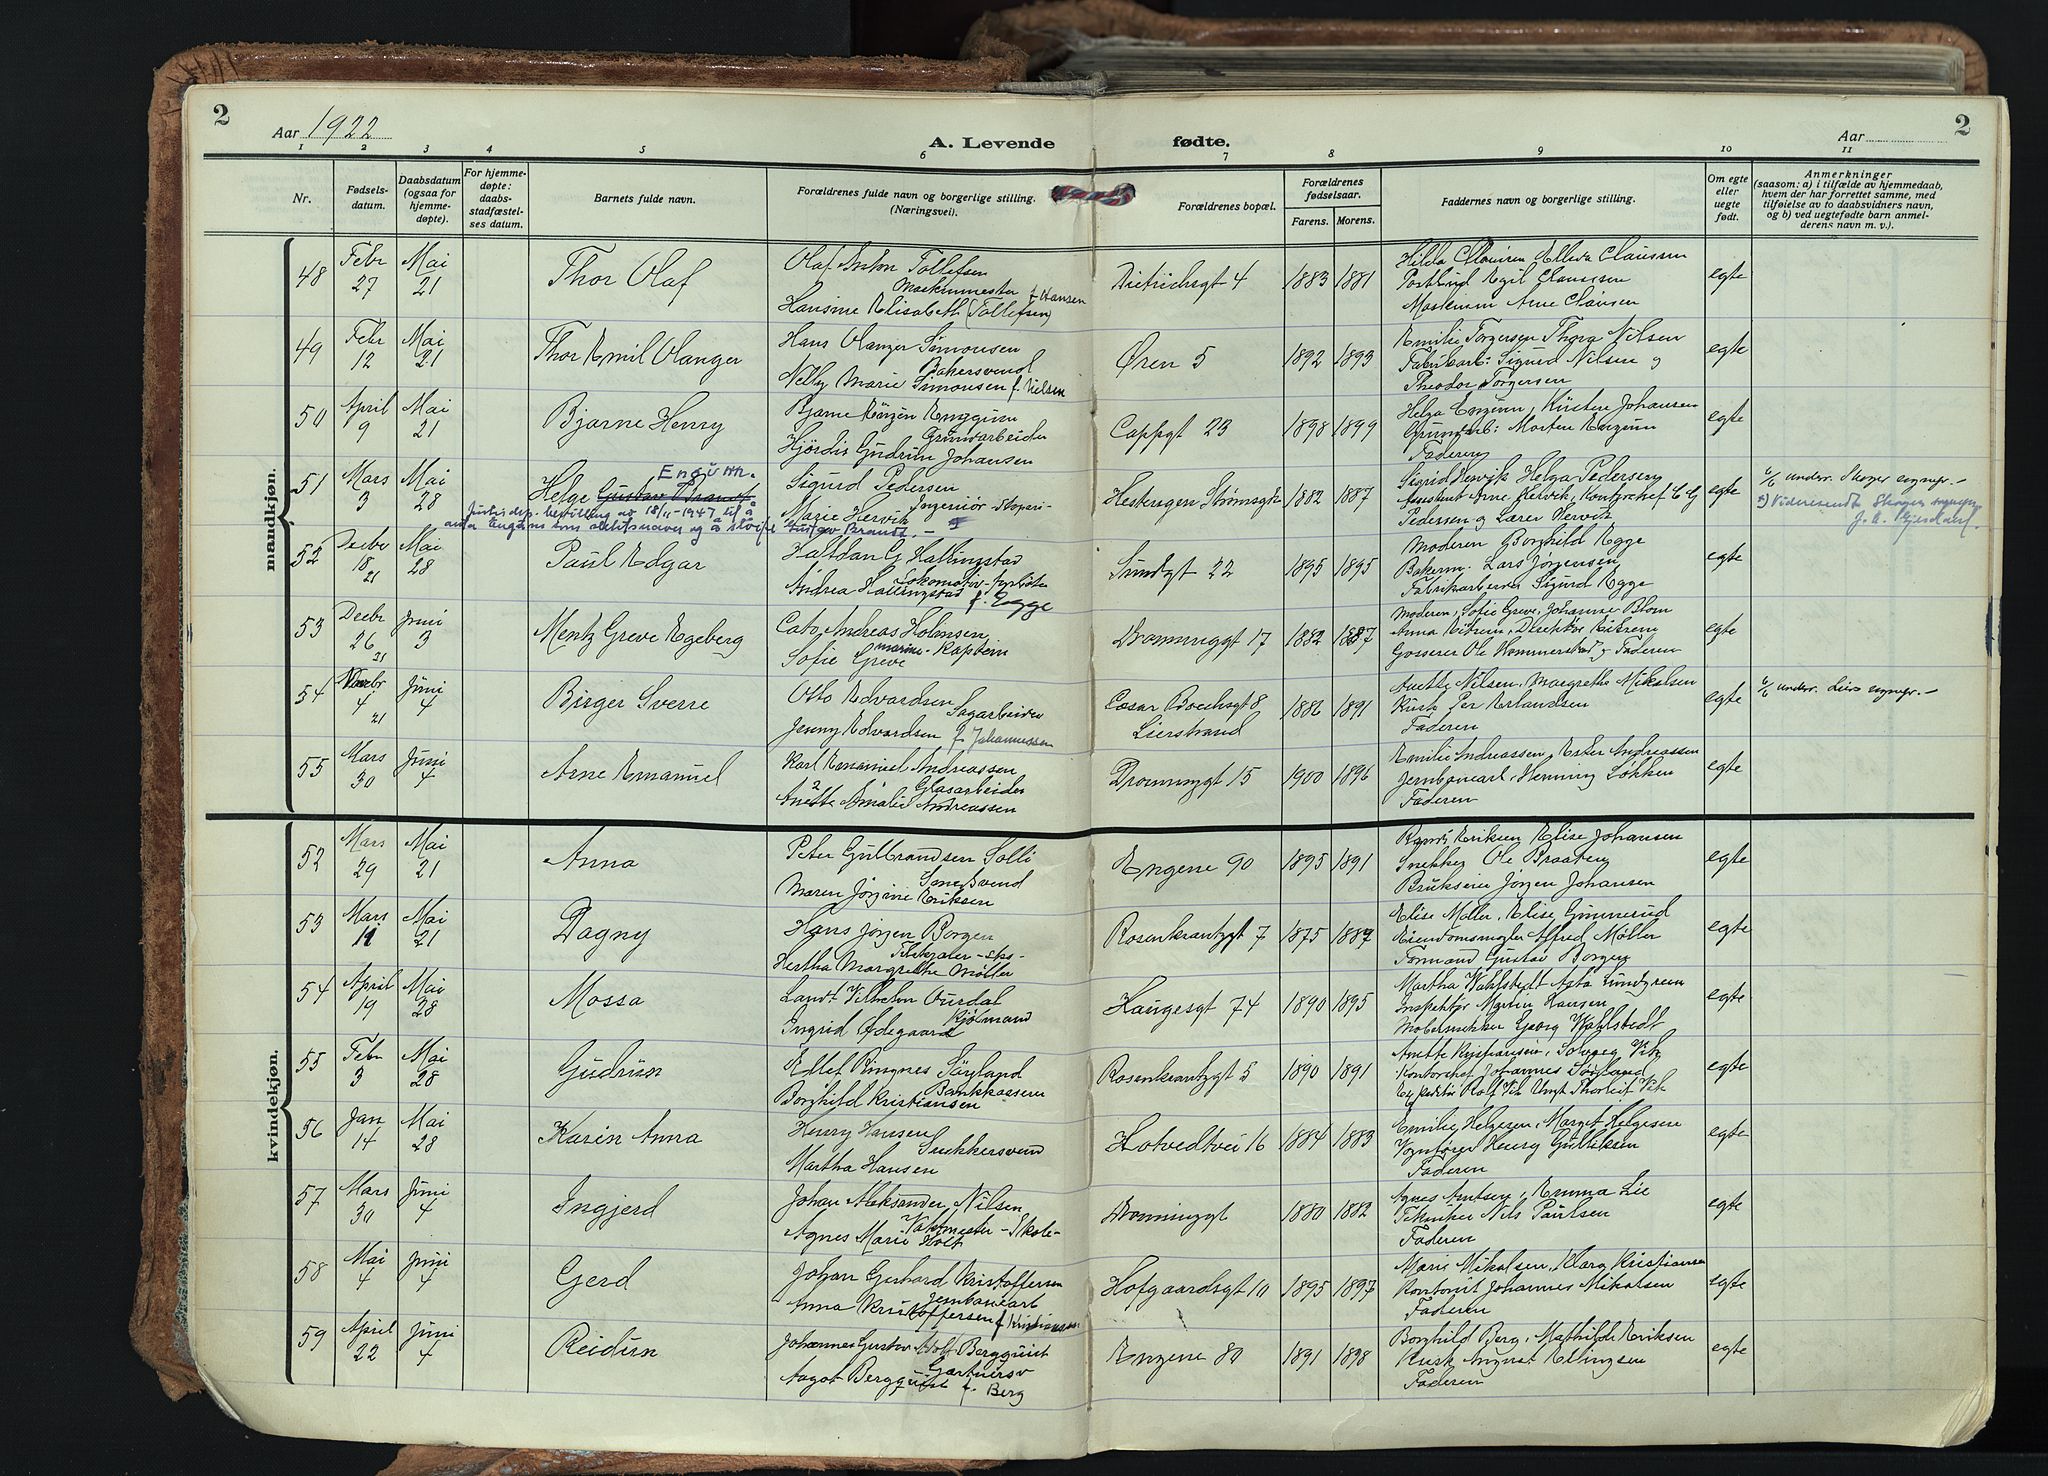 2
Aar 1922
A. Levende fødte.
Aar
2
1 2 3 4 5 6 7 8 9 10 11
Nr.
Fødsels-
datum.
Daabsdatum
(ogsaa for
hjemme-
døpte).
For hjemme-
døpte:
daabs-
stadfæstel-
ses datum.
Barnets fulde navn.
Forældrenes fulde navn og borgerlige stilling.
(Næringsvei).
Forældrenes bopæl.
Forældrenes
fødselsaar.
Farens. Morens.
Faddernes navn og borgerlige stilling.
Om egte
eller
uegte
født.
Anmerkninger
(saasom: a) i tilfælde av hjemmedaab,
hvem der har forrettet samme, med
tilføielse av to daabsvidners navn,
og b) ved uegtefødte barn anmel-
derens navn m. v.).
mandkjøn.
48 Febr 27 Mai 21 Thor Olaf
Olaf Anton Tollefsen
Maskinmester
Hansine Elisabeth (Tollefsen) f Hansen
Dietrichsgt 4 1883 1881
Hilda Clausen
Egil Clausen
Arne Clausen
egte
49 Febr 12 Mai 21 Thor Emil Olanger
Hans Olanger Simonsen
Bakersvend
Nelly Marie Simonsen f. Nielsen
Øren 5 1892 1893
Emilie Torgersen Thora Nilsen
Fabrikarb: Sigurd Nilsen og
Theodor Torgersen
egte
50 April 9 Mai 21 Bjarne Henry
Bjarne
Grundarbeider
Hjørdis Gudrun Johansen
Cappgt 23 1898 1899
Helga Engum, Kirstine Johansen
Grundarb: Morten Engum
Faderen
egte
51 Mars 3 Mai 28 Helge Gustav Brandt Engum.
Sigurd Pedersen
Ingeniør
Marie Hervik
Justisdep. bevilling av 18/11-1947 til å
anta Engum som slektsnavn og å sløife Gustav Brandt. -
1882 1887
Sigrid Hervik Helga Pedersen
Assistent Arne Hervik, Kontorchef C G
Pedersen og Lærer Hervik
egte
6/6 underr. Skoger sogнepr. -
52 Decbr 18 21 Mai 28 Paul Edgar
Halfdan G Hallingstad
Lokomotiv-fyrbøter
Andrea Hallingstad f. Egge
Sundgt 22 1895 1895
Moderen Borghild Egge
Bakerm. Lars Jørgensen
Fabrikarbeider Sigurd Egge
egte
53 Decbr 26 21 Juni 3 Mentz Greve Egeberg
Cato Andreas Holmsen
marine-Kaptein
Sofie Greve
Dronninggt 17 1882 1887
Moderen, Sofie Greve, Johanne Blom
Anna Eitrem, Direktør Eitrem
Grosserer Ole Hommerstad, Faderen
egte
54 4 21 Juni 4 Birger Sverre
Otto Edvardsen
Sagarbeider
Jenny Edvardsen f Johannessen
Cæsar Boechsgt 8
Lierstrand
1886 1891
Anette Nilsen, Margrethe Mikalsen
Kusk Per Erlandsen
Faderen
egte
6/6 underr. Liers sognepr. -
55 Mars 30 Juni 4 Arne Emanuel
Karl Emanuel Andreassen
Glasarbeider
Anette Amalie Andreassen
Dronninggt 15 1900 1896
Emilie Andreassen, Ester Andreassen
Jernbanearb. Henning Løkken
Faderen
egte
kvindekjøn.
52 Mars 29 Mai 21 Anna
Peter Gulbrandsen Solli
Smedsvend
Maren Jørgine Eriksen
Engene 90 1895 1891
Randi Eriksen Elise Johansen
Snekker Ole Braaten
Brukseier Jørgen Johansen
egte
53 Mars 11 Mai 21 Dagny
Hans Jørgen Borgen
Hertha Margrethe Møller
Rosenkrantzgt 7 1875 1887
Elise Møller, Elise Gunnerud
Eiendomsmegler Alfred Møller
Formand Gustav Borgen
egte
54 April 19 Mai 28 Mossa
Landt Vilhelm Aurdal
Kjøbmand
Ingrid Ødegaard
Haugesgt 74 1890 1895
Martha Wahlstedt Asta Lundgreen
Inspektør Martin Hansen
Møbelsnekker Georg Wahlstedt
egte
55 Febr 3 Mai 28 Gudrun
Edlef Ringnes Sørland
Bankkasserer
Borghild Kristiansen
Rosenkrantzgt 5 1890 1891
Anette Kristiansen, Solveig Vik
Kontorchef Johannes Sørland
Expeditør Rolf Vik Ungt Thorleif Vik
egte
56 Jan 14 Mai 28 Karin Anna
Henry Hansen
Snekkersvend
Martha Hansen
Hotvedtvei 16 1884 1883
Emilie Helgesen, Margit Helgesen
Vognfører Henry Gulliksen
Faderen
egte
57 Mars 30 Juni 4 Ingjerd
Johan Aleksander Nilsen
Vaktmester - Skole-
Agnes Marie Holt
Dronninggt 1880 1882
Agnes Amtsen, Emma Lie
Tekniker Nils Paulsen
Faderen
egte
58 Mai 4 Juni 4 Gerd
Johan Gerhard Kristoffersen
Jernbanearb
Anna Kristoffersen f Kristiansen
Hofgaardsgt 10 1895 1897
Marie Mikalsen, Klara Kristiansen
Kontorist Johannes Mikalsen
Faderen
egte
59 April 22 Juni 4 Reidun
Johannes Gustav Adolf Bergquist
Gartnersv
Aagot Bergquist f. Berg
Engene 80 1891 1898
Borghild Berg, Mathilde Eriksen
Kusk August Ellingsen
Faderen
egte